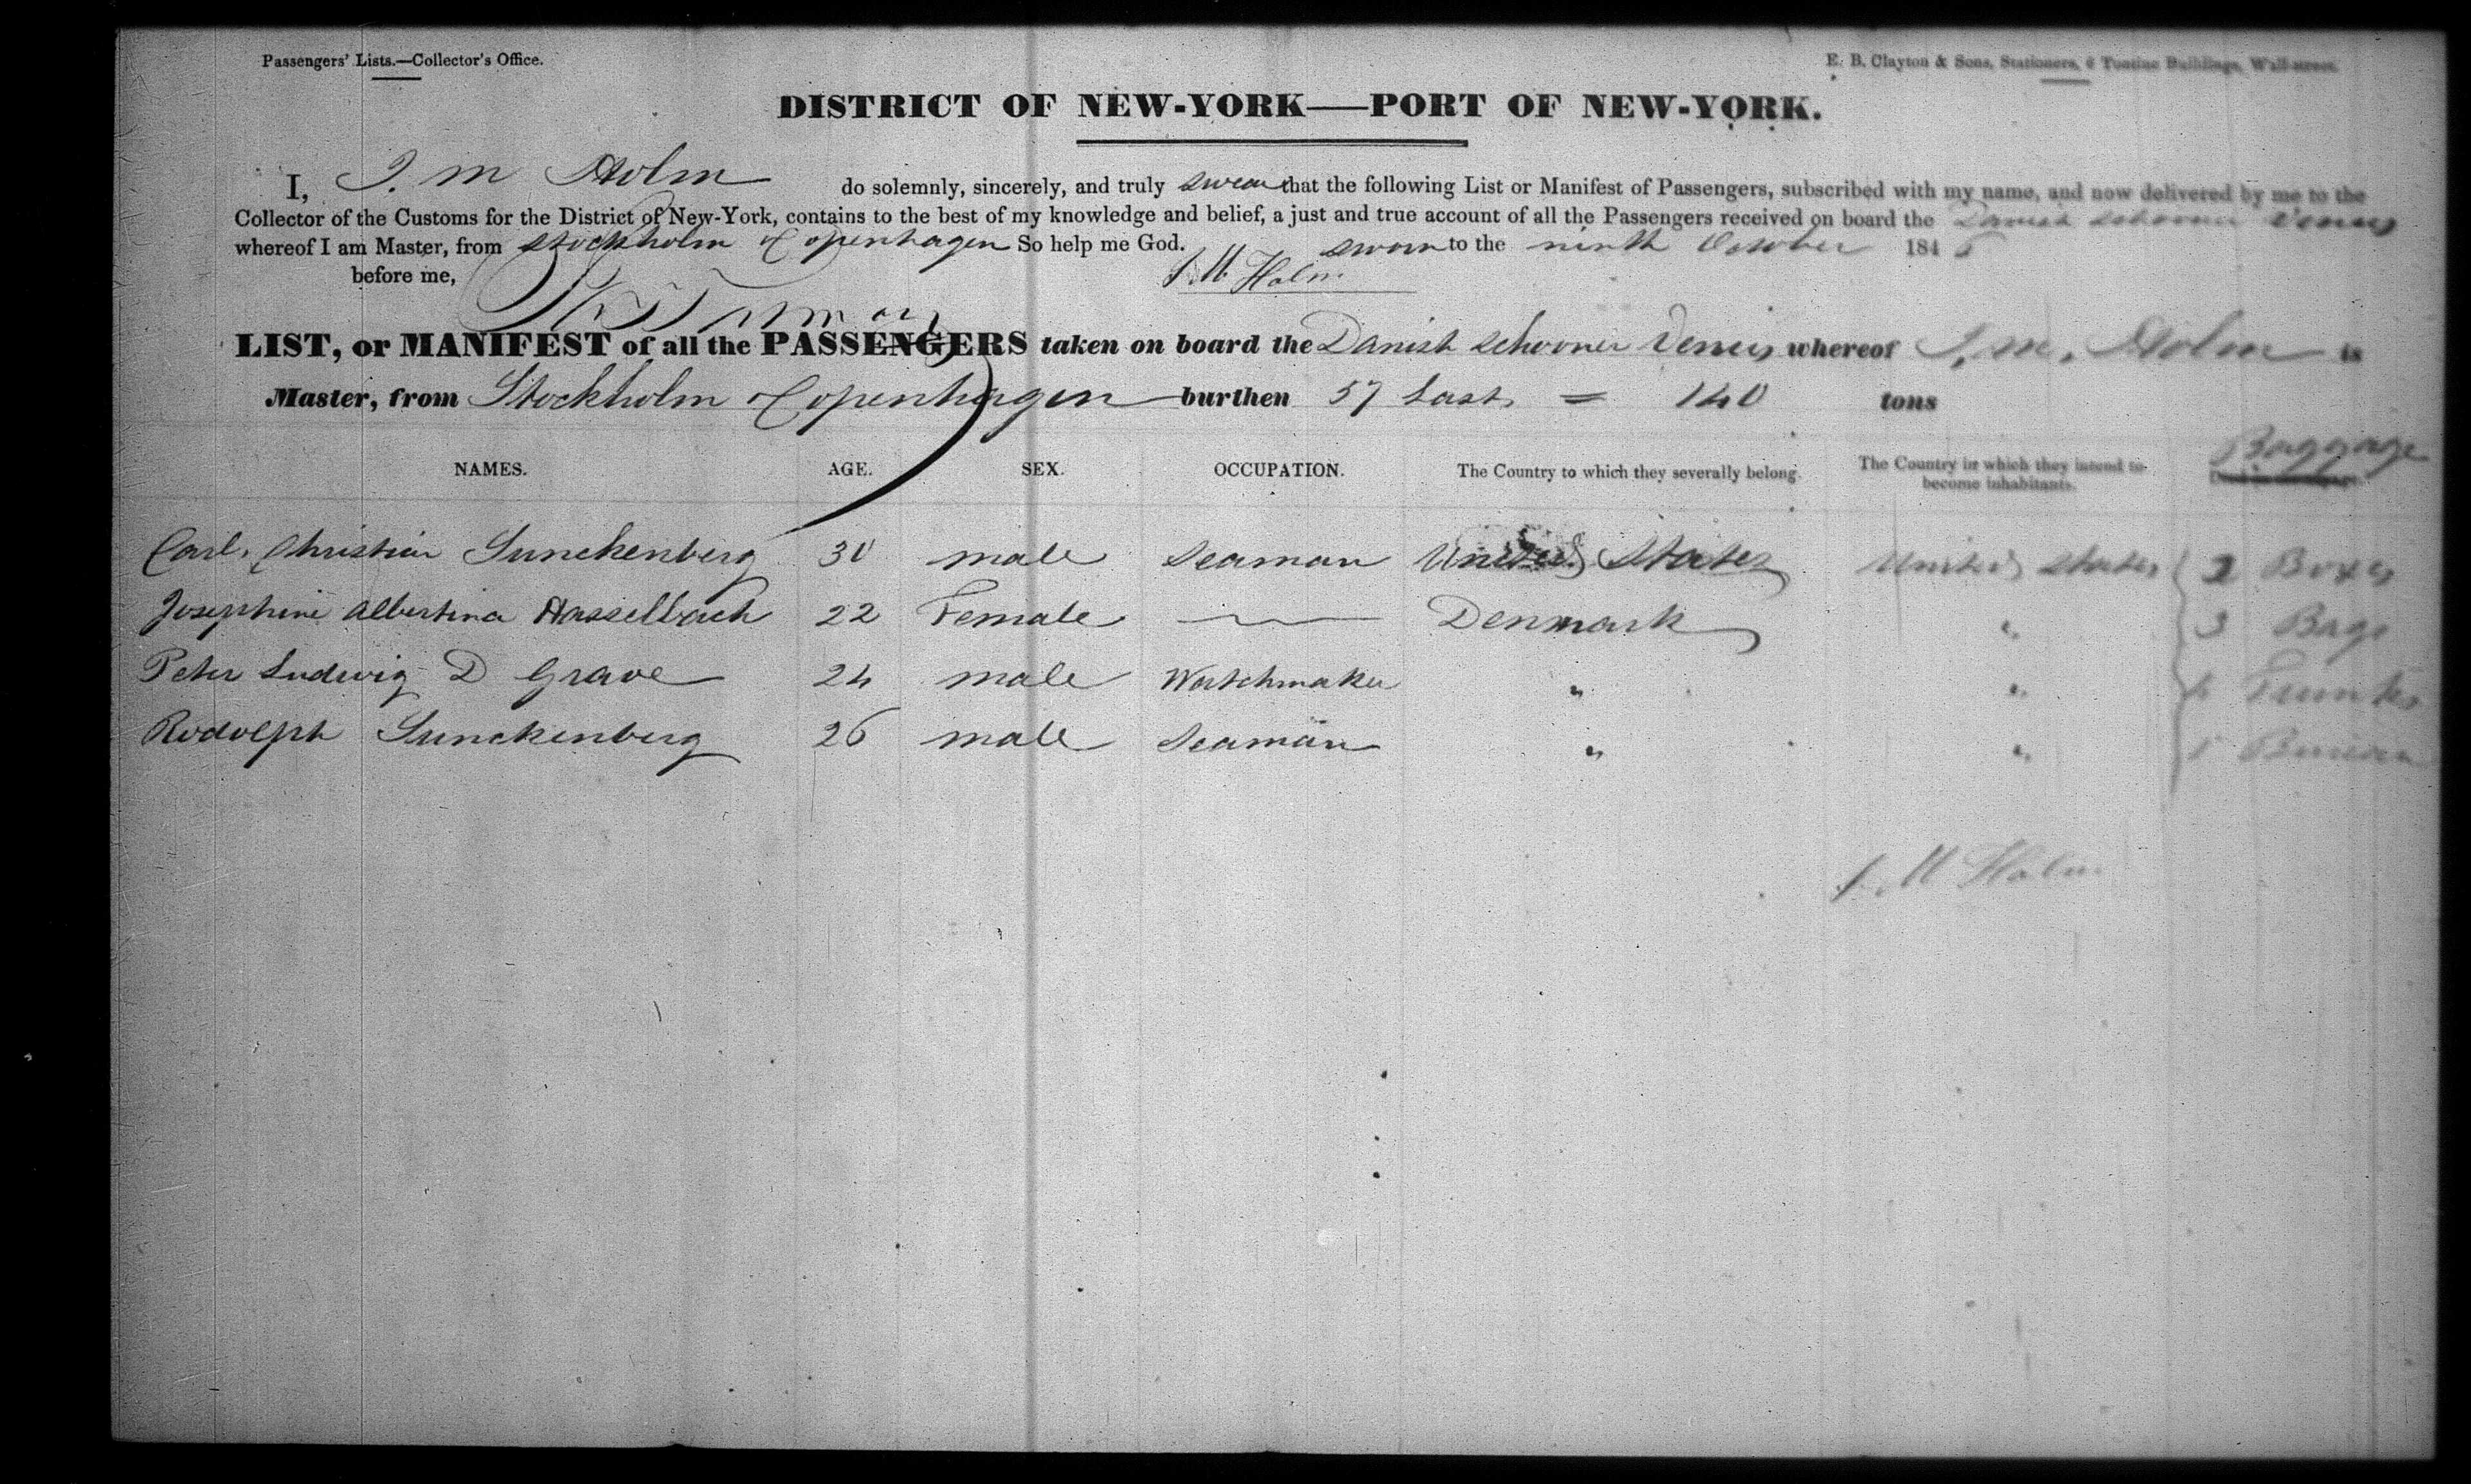 Passengers' Lists.—Collector's Office.
E. B. Clayton & Sons, Stationers, 6 Tontine Buildings, Wall-street.
DISTRICT OF NEW-YORK—PORT OF NEW-YORK.
I, J. M Holm do solemnly, sincerely, and truly swear that the following List or Manifest of Passengers, subscribed with my name, and now delivered by me to the
Collector of the Customs for the District of New-York, contains to the best of my knowledge and belief, a just and true account of all the Passengers received on board the Danish Schooner Venus
whereof I am Master, from Stockholm & Copenhagen So help me God. sworn to the ninth October 184
before me, J. M Holm
LIST, or MANIFEST of all the PASSENGERS taken on board the Danish Schooner Venus whereof J. M. Holm is
Master, from Stockholm & Copenhagen burthen 57 Last = 140 tons
NAMES. AGE. SEX. OCCUPATION. The Country to which they severally belong. The Country in which they intend to become inhabitants. Baggage
Carl Christian Lunckenberg 30 male Seaman United States United States 2 Boxes
Josephine Albertina Hasselbach 22 Female — Denmark " 3 Bags
Peter Ludwig D Grave 24 male Watchmaker " " Trunks
Rodolph Lunckenberg 26 male Seaman " " 1 Bureau
J. M Holm